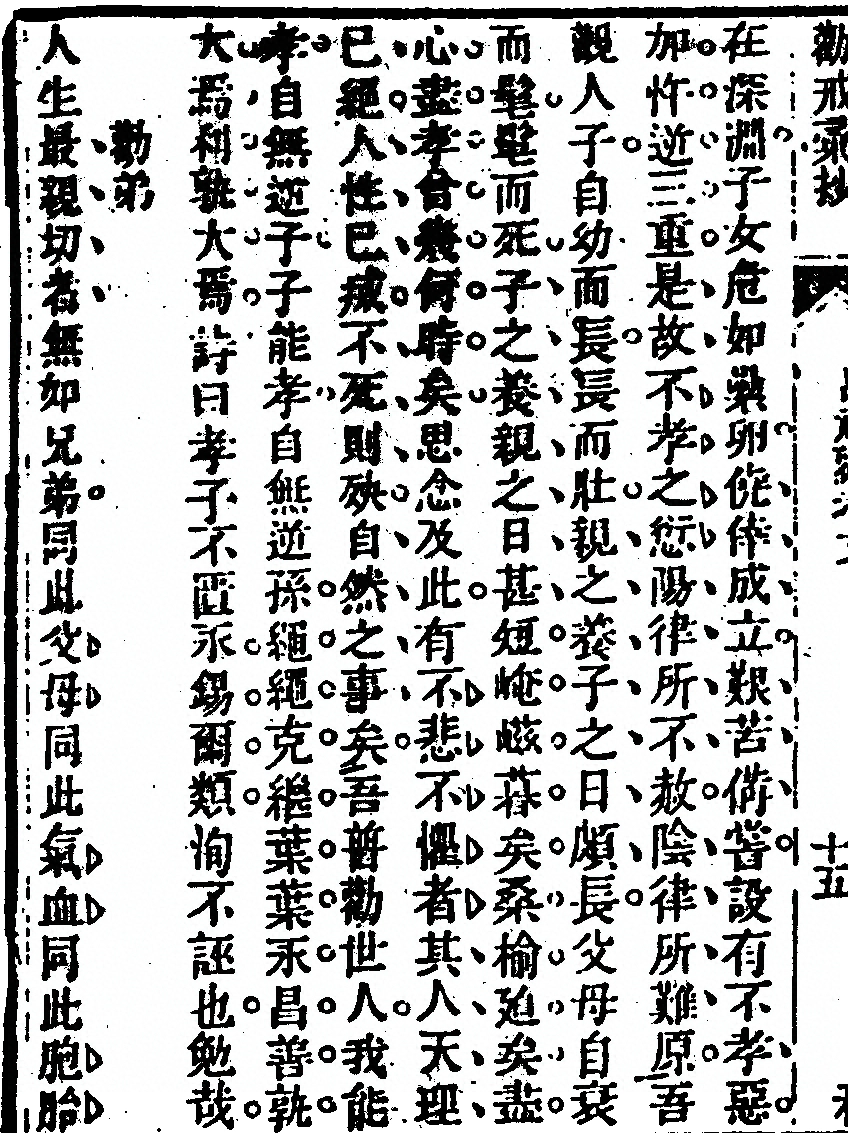 勸戒彙抄
十五
在深淵子女危如纍卵僥倖成立艱苦備嘗設有不孝惡
加忤逆三重是故不孝之愆陽律所不赦陰律所難原吾
觀人子自幼而長長而壯親之養子之日頗長父母自衰
而髦髦而死子之養親之日甚短崦嵫暮矣桑榆廹矣盡
心盡孝會幾何時矣思念及此有不悲不懼者其人天理
已絕人性已滅不死則殃自然之事矣吾普勸世人我能
孝自無逆子子能孝自無逆孫繩繩克繼葉葉永昌善孰
大焉利孰大焉詩曰孝子不匱永錫爾類洵不誣也勉哉
勸弟
人生最親切者無如兄弟同此父母同此氣血同此胞胎